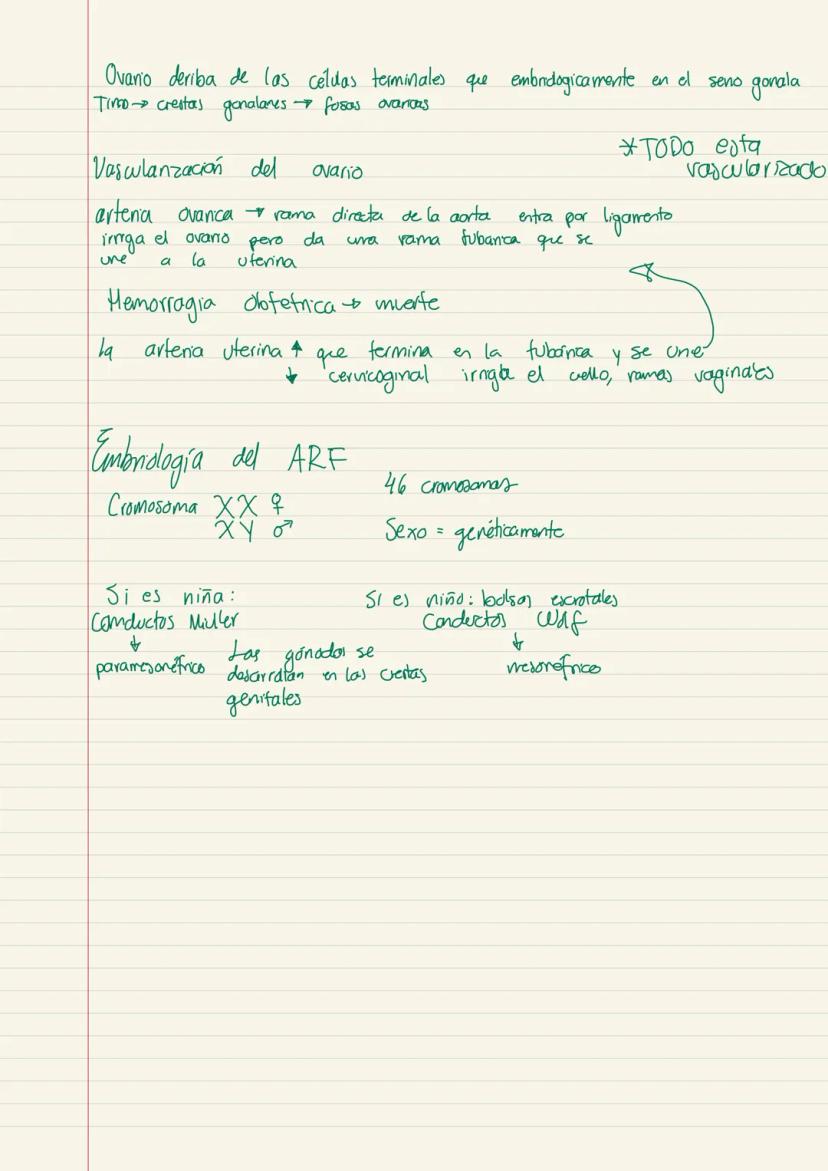 Ovario deriba de las células terminales que embriologicamente en el seno gonala
Timo → crestas gonalares → fosas ovaricas
*TODO esta
vascularizado
Vascularización del ovario
arteria ovarica → rama directa de la aorta entra por ligamento
irriga el ovario pero da una rama tubarica que se
une a la uterina
Hemorragia obstetrica → muerte
la arteria uterina ↑ que termina en la tubárica y se une
↓ cervicoginal irriga el cuello, ramas vaginales
Embriología del ARF
46 cromosomas
Cromosoma XX ♀
XY ♂
Sexo = genéticamente
Si es niña:
Conductos Muller
↓
paramesonéfrico
Las gónadas se
desarrollan en las crestas
genitales
Si es niño: bolsas escrotales
Conductos Wolf
↓
mesonéfrico